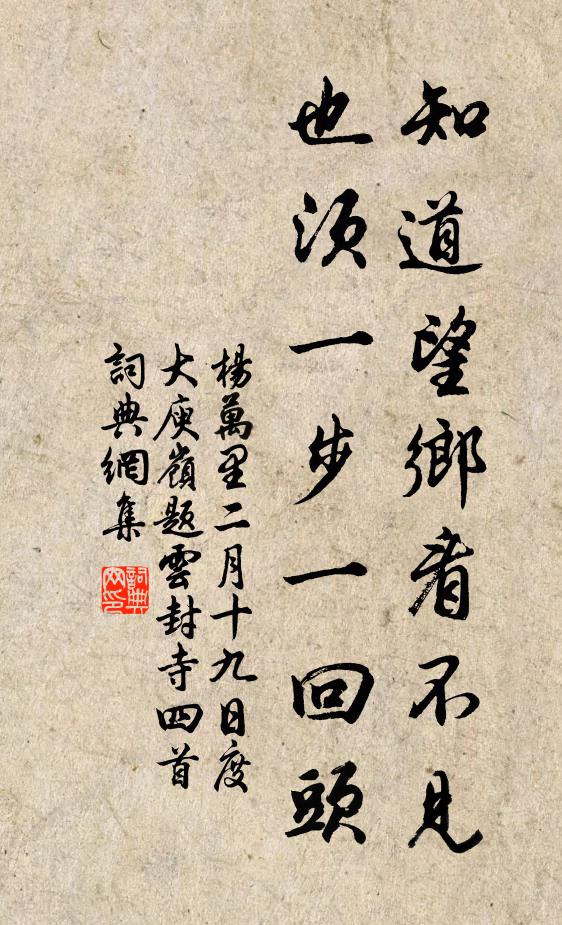 知道望鄉看不見
也須一步一回頭
楊萬里二月十九日度
大庾嶺題雲封寺四首
詞典網集
詞典
网印